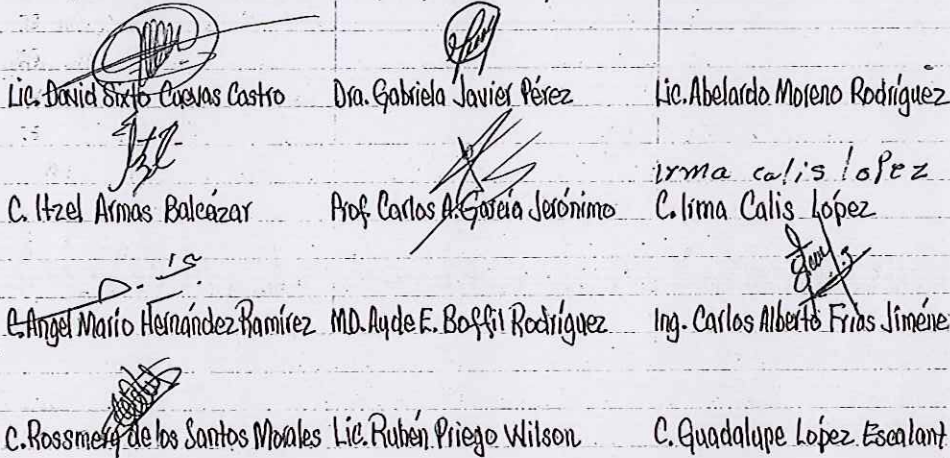 Lic. David Sixto Cuevas Castro Dra. Gabriela Javier Pérez Lic. Abelardo Moreno Rodríguez
irma calis lopez
C. Itzel Armas Balcázar Prof. Carlos A. García Jerónimo C. Irma Calis López
C. Angel Mario Hernández Ramírez MD. Ayde E. Boffil Rodríguez Ing. Carlos Alberto Frías Jiméne
C. Rossmery de los Santos Morales Lic. Rubén Priego Wilson C. Guadalupe López Escalant